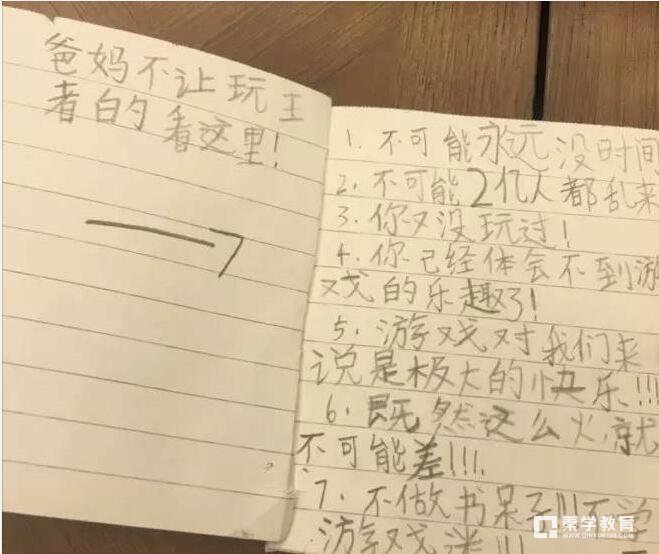 爸妈不让玩王
者白的看这里!
1.不可能永远没时间
2.不可能2亿人都乱来
3.你又没玩过!
4.你已经体会不到游
戏的乐趣了!
5.游戏对我们来
说是极大的快乐!!!
6.既然这么火,就
不可能差!!!.
7.不做书呆子!!不学
游戏迷!!!
秦学教育
WWW.QINXUE100.COM